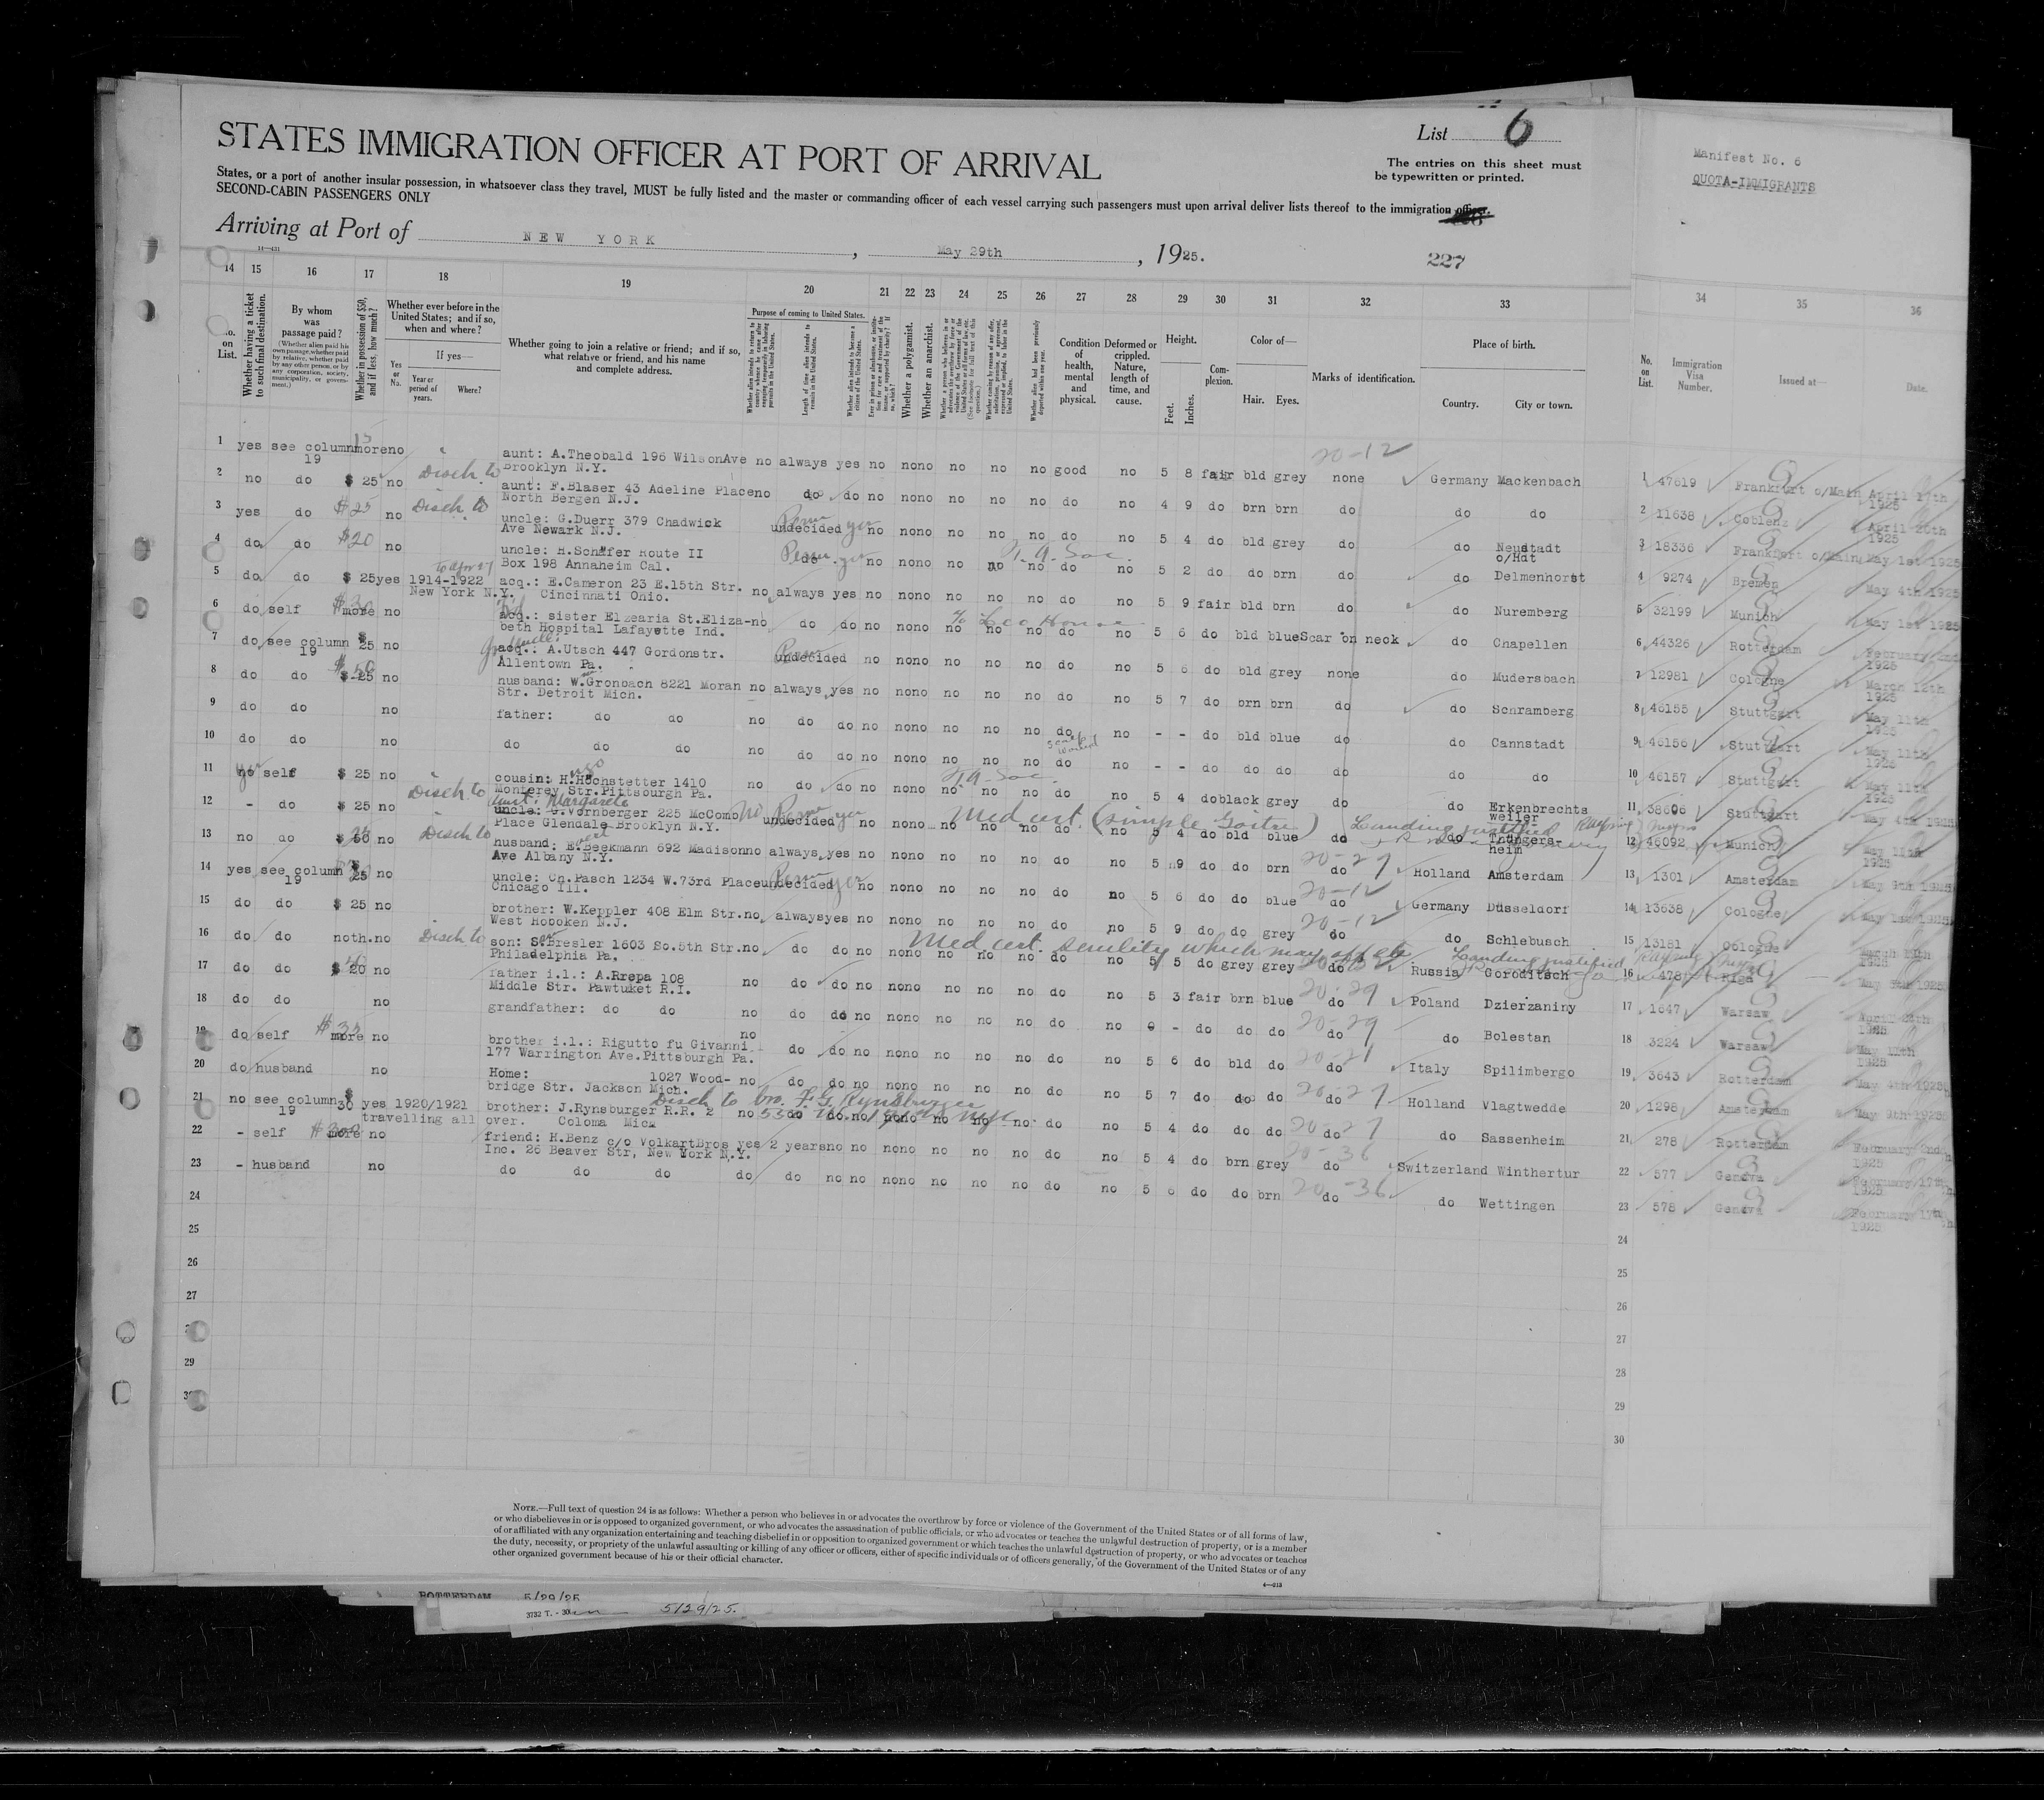 List 6
STATES IMMIGRATION OFFICER AT PORT OF ARRIVAL
The entries on this sheet must
be typewritten or printed.
Manifest No. 6
QUOTA-IMMIGRANTS
States, or a port of another insular possession, in whatsoever class they travel, MUST be fully listed and the master or commanding officer of each vessel carrying such passengers must upon arrival deliver lists thereof to the immigration officer.
SECOND-CABIN PASSENGERS ONLY
Arriving at Port of NEW YORK, May 29th, 1925.
227
14 15 16 17 18 19 20 21 22 23 24 25 26 27 28 29 30 31 32 33 34 35 36
No. on List.
Whether having a ticket to such final destination.
By whom was passage paid?
(Whether alien paid his own passage, whether paid by relative, whether paid by any other person, or by any corporation, society, municipality, or government.)
Whether in possession of $50, and if less, how much?
Whether ever before in the United States; and if so, when and where?
Yes or No.
If yes—
Year or period of years.
Where?
Whether going to join a relative or friend; and if so, what relative or friend, and his name and complete address.
Purpose of coming to United States.
Length of time alien intends to remain in the United States.
Whether alien intends to become a citizen of the United States.
Whether a polygamist.
Whether an anarchist.
Condition of health, mental and physical.
Deformed or crippled. Nature, length of time, and cause.
Height.
Feet. Inches.
Complexion.
Color of—
Hair. Eyes.
Marks of identification.
Place of birth.
Country. City or town.
No. on List.
Immigration Visa Number.
Issued at—
Date.
1 yes see column 19 more no aunt: A.Theobald 196 WilsonAve Brooklyn N.Y. no always yes no no no no no no good no 5 8 fair bld grey none Germany Mackenbach 1 47619 Frankfurt o/Main April 17th 1925
2 no do $ 25 no Disch to aunt: F.Blaser 43 Adeline Place North Bergen N.J. no do do no no no no no no do no 4 9 do brn brn do do do 2 11638 Coblenz April 20th 1925
3 yes do $25 no Disch to uncle: G.Duerr 379 Chadwick Ave Newark N.J. undecided yes no no no no no no do no 5 4 do bld grey do do Neustadt o/Hdt 3 18336 Frankfurt o/Main May 1st 1925
4 do do $20 no uncle: H.Schäfer Route II Box 198 Annaheim Cal. do no no no no no no do no 5 2 do do brn do do Delmenhorst 4 9274 Bremen May 4th 1925
5 do do $ 25 yes 1914-1922 New York N.Y. acq.: E.Cameron 23 E.15th Str. Cincinnati Ohio. no always yes no no no no no no do no 5 9 fair bld brn do do Nuremberg 5 32199 Munich May 1st 1925
6 do self more no acq.: sister Elzearia St.Elizabeth Hospital Lafayette Ind. no do do no no no no no no do no 5 6 do bld blue Scar on neck do Chapellen 6 44326 Rotterdam February 2nd 1925
7 do see column 19 $ 25 no acq.: A.Utsch 447 Gordonstr. Allentown Pa. undecided no no no no no no do no 5 6 do bld grey none do Mudersbach 7 12981 Cologne March 12th 1925
8 do do $ 25 no husband: W.Gronbach 8221 Moran Str. Detroit Mich. no always yes no no no no no no do no 5 7 do brn brn do do Schramberg 8 46155 Stuttgart May 11th 1925
9 do do no father: do do no do do no no no no no no do no - - do bld blue do do Cannstadt 9 46156 Stuttgart May 11th 1925
10 do do no do do do no do do no no no no no no do no - - do do do do do do 10 46157 Stuttgart May 11th 1925
11 no self $ 25 no cousin: H.Hochstetter 1410 Monterey Str.Pittsburgh Pa. no do do no no no no no no do no 5 4 do black grey do do Erkenbrechtsweiler 11 38606 Stuttgart May 4th 1925
12 - do $ 25 no Disch to aunt: Margarete uncle: G.Vornberger 225 McComb Place Glendale Brooklyn N.Y. undecided yes no no no Med cert. (simple Goitre) no no no do no 5 4 do bld blue do Landing justified do Thüngersheim 12 46092 Munich
13 no do no Disch to husband: E.Beekmann 692 Madison Ave Albany N.Y. no always yes no no no no no no do no 5 9 do do brn do 20-27 Holland Amsterdam 13 1301 Amsterdam May 9th 1925
14 yes see column 19 $ 25 no uncle: Ch.Pasch 1234 W.73rd Place Chicago Ill. undecided yes no no no no no no do no 5 6 do do blue do 20-12 Germany Düsseldorf 14 13638 Cologne May 1st 1925
15 do do $ 25 no brother: W.Keppler 408 Elm Str. West Hoboken N.J. no always yes no no no no no no do no 5 9 do do grey do 20-12 do Schlebusch 15 13181 Cologne 1925
16 do do noth. no Disch to son: S.Bresler 1603 So.5th Str. Philadelphia Pa. no do do no no no Med cert. senility which may affect no no no do no 5 5 do grey grey do Landing justified Russia Goroditsch 16 478 Riga
17 do do $ 20 no father i.l.: A.Rrepa 108 Middle Str. Pawtuket R.I. no do do no no no no no no do no 5 3 fair brn blue do 20-29 Poland Dzierzaniny 17 1647 Warsaw 1925
18 do do no grandfather: do do no do do no no no no no no do no - do do do do 20-29 do Bolestan 18 3224 Warsaw 1925
19 do self $35 more no brother i.l.: Rigutto fu Givanni 177 Warrington Ave.Pittsburgh Pa. no do do no no no no no no do no 5 6 do bld do do Italy Spilimbergo 19 3643 Rotterdam May 4th 1925
20 do husband no Home: 1027 Woodbridge Str. Jackson Mich. no do do no no no no no no do no 5 7 do do do do 20-27 Holland Vlagtwedde 20 1298 Amsterdam May 9th 1925
21 no see column 19 $ 30 yes 1920/1921 travelling all over. Disch to bro. F.G. Rynsburger brother: J.Rynsburger R.R. 2 Coloma Mich no do do no no no no no no do no 5 4 do do do do 20-27 do Sassenheim 21 278 Rotterdam February 2nd 1925
22 - self more no friend: H.Benz c/o VolkartBros Inc. 26 Beaver Str, New York N.Y. yes 2 years no no no no no no no do no 5 4 do brn grey do 20-36 Switzerland Winthertur 22 577 Geneva February 17th 1925
23 - husband no do do do do do no no no no no no no do no 5 6 do do brn do 20-36 do Wettingen 23 578 Geneva February 17th 1925
24 24
25 25
26 26
27 27
28
29 29
30 30
NOTE.—Full text of question 24 is as follows: Whether a person who believes in or advocates the overthrow by force or violence of the Government of the United States or of all forms of law,
or who disbelieves in or is opposed to organized government, or who advocates the assassination of public officials, or who advocates or teaches the unlawful destruction of property, or is a member
of or affiliated with any organization entertaining and teaching disbelief in or opposition to organized government or which teaches the unlawful destruction of property, or who advocates or teaches
the duty, necessity, or propriety of the unlawful assaulting or killing of any officer or officers, either of specific individuals or of officers generally, of the Government of the United States or of any
other organized government because of his or their official character.
ROTTERDAM 5/29/25
3732 T. 5/29/25.